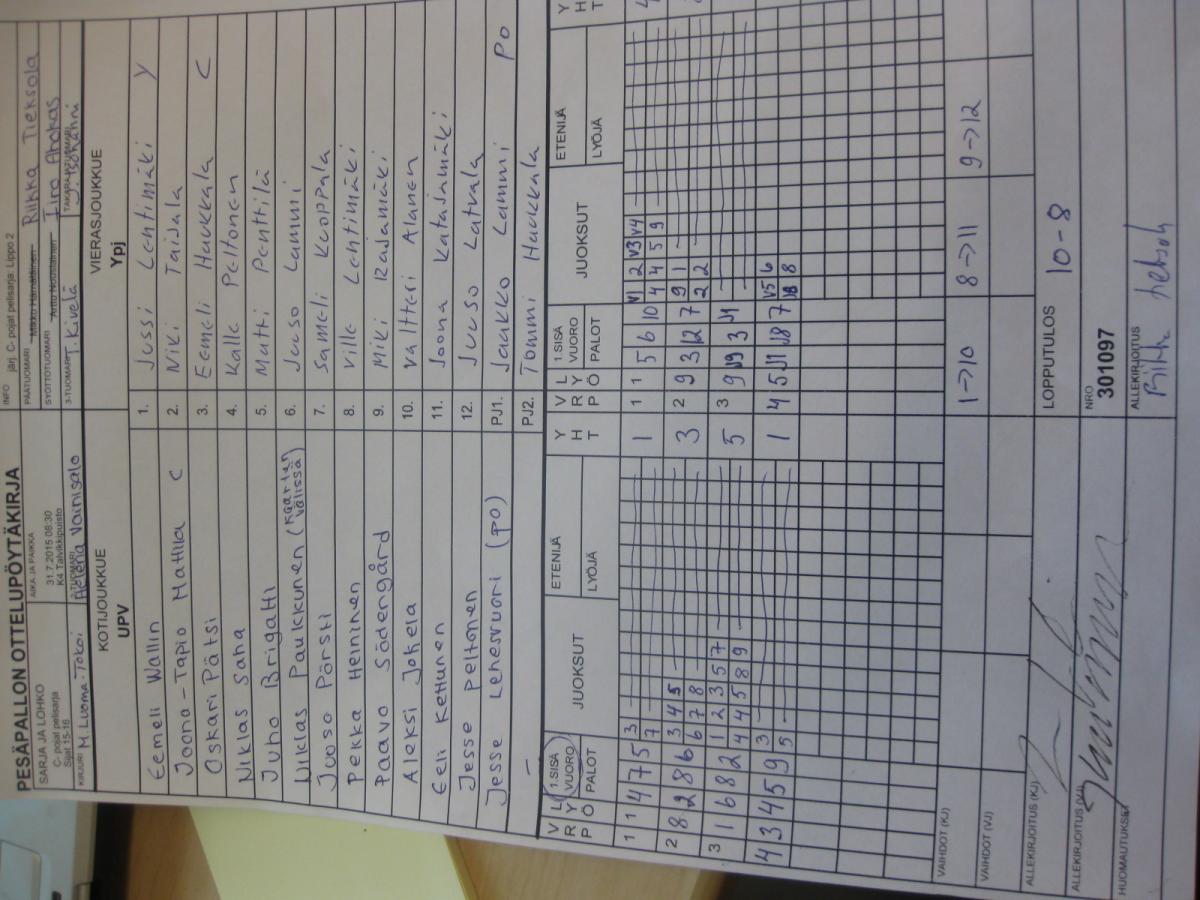 PESÄPALLON OTTELUPÖYTÄKIRJA
SARJA JA LOHKO
C- pojat pelisarja
Sijat 15-16
AIKA JA PAIKKA
31.7.2015 08:30
K4 Talvikkipuisto
INFO järj. C- pojat pelisarja: Lippo 2
PÄÄTUOMARI Mikko Hämäläinen Riikka Tieksola
SYÖTTÖTUOMARI Arttu Nousiainen Iiro Ahokas
KIRJURI M. Luoma-Tokoi
2-TUOMARI Helena Vainisalo
3-TUOMARI T. Kivelä
TAKARAJATUOMARI
KOTIJOUKKUE
UPV
VIERASJOUKKUE
Ypj
Eemeli Wallin 1. Jussi Lehtimäki Y
Joona-Tapio Mattila C 2. Niki Taijala
Oskari Pätsi 3. Eemeli Haukkala C
Niklas Saha 4. Kalle Peltonen
Juho Brigatti 5. Matti Penttilä
Niklas Paukkunen (kaarten välissä) 6. Juuso Lammi
Juuso Pörsti 7. Sameli Kuoppala
Pekka Heininen 8. Ville Lehtimäki
Paavo Södengård 9. Miki Rajamäki
Aleksi Jokela 10. Valtteri Alanen
Eeli Kettunen 11. Joona Katajamäki
Jesse Peltonen 12. Juuso Latvala
Jesse Lehesvuori (PO) PJ1. Jaakko Lammi PO
— PJ2. Tommi Haukkala
V R P L Y Ö 1.SISÄ VUORO PALOT JUOKSUT ETENIJÄ LYÖJÄ Y H T
V R P L Y Ö 1.SISÄ VUORO PALOT JUOKSUT ETENIJÄ LYÖJÄ Y H T
1 1 4 7 5 3 7 1
1 1 5 6 10 V1 2 V3 V4 4 4 5 9
2 8 2 8 6 3 4 5 6 7 8 3
2 9 3 12 7 9 1 2 2
3 1 6 8 2 1 2 3 5 7 4 4 5 8 9 5
3 9 J9 3 J1
4 3 4 5 9 3 5 1
4 5 J1 J8 7 V5 6 J8 8
VAIHDOT (KJ) 1->10 8->11 9->12
VAIHDOT (VJ)
ALLEKIRJOITUS (KJ)
LOPPUTULOS 10-8
ALLEKIRJOITUS (VJ)
NRO
301097
HUOMAUTUKSET
ALLEKIRJOITUS